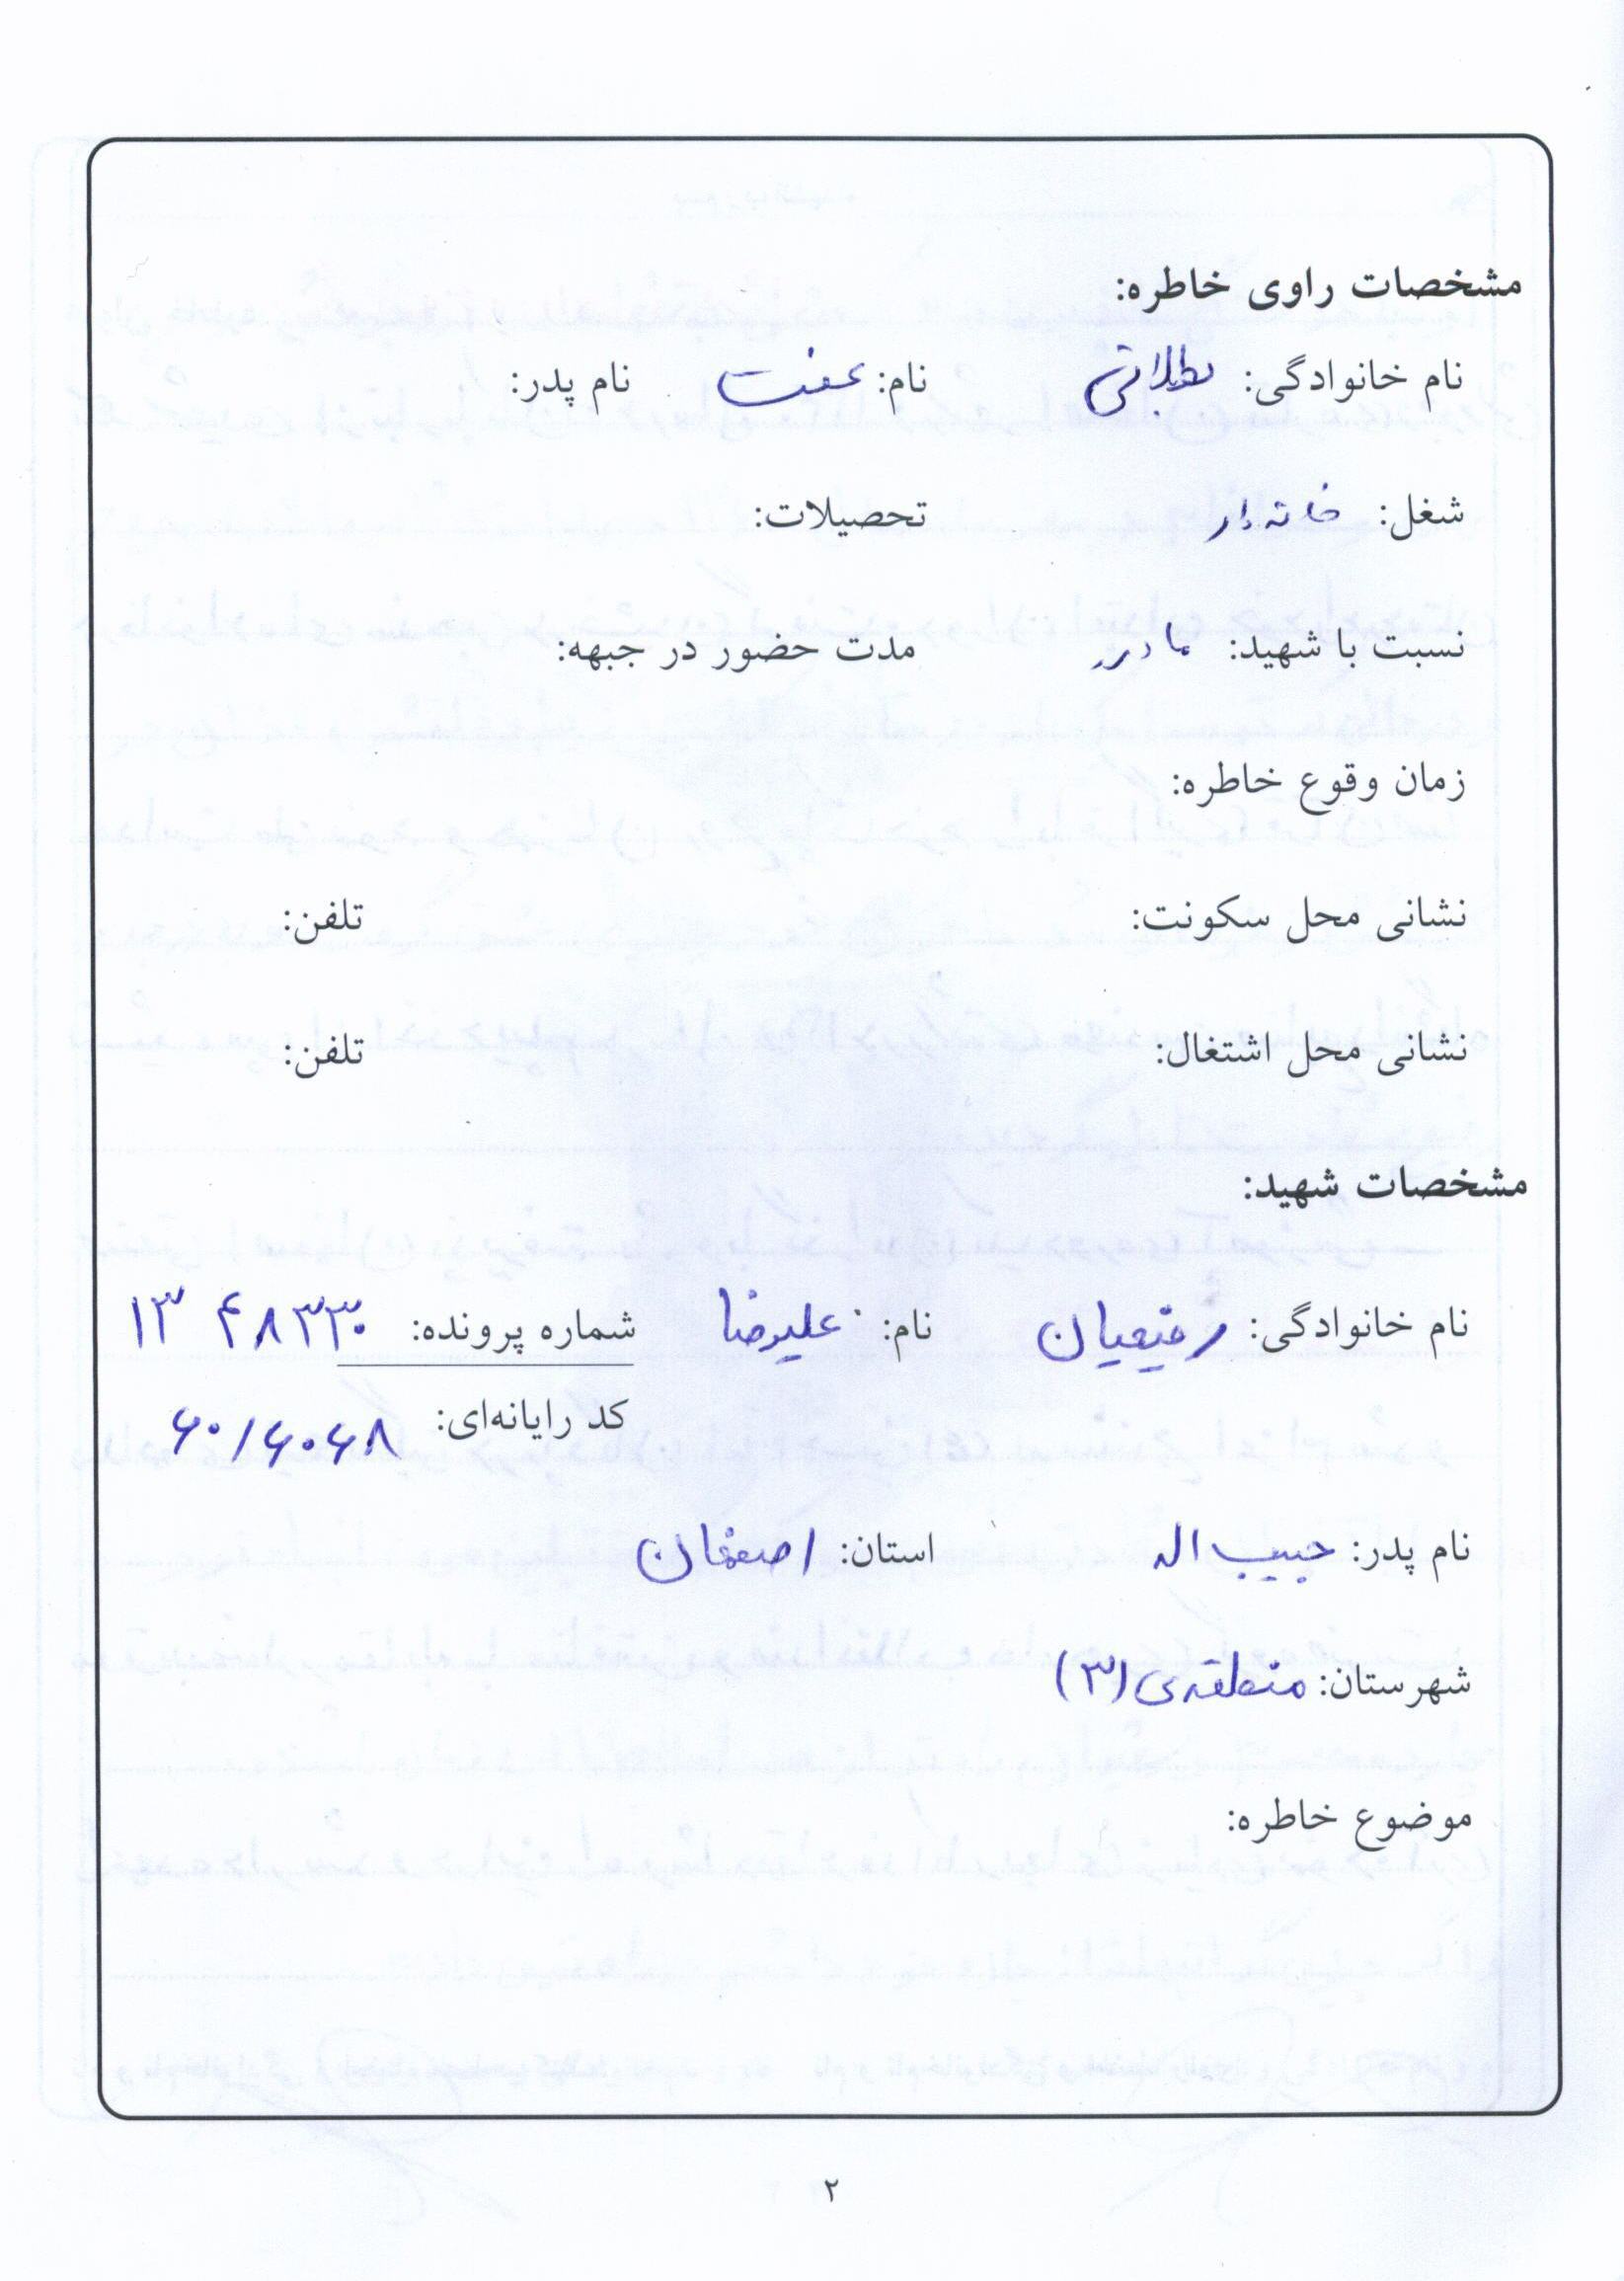 مشخصات راوی خاطره:
نام خانوادگی: نام: عفت نام پدر:
شغل: خانه دار تحصیلات:
نسبت با شهید: مادر مدت حضور در جبهه:
زمان وقوع خاطره:
نشانی محل سکونت: تلفن:
نشانی محل اشتغال: تلفن:
مشخصات شهید:
نام خانوادگی: رفیعیان نام: علیرضا شماره پرونده: ۱۳۴۸۳۳۰
کد رایانه‌ای: ۶۰/۶۰۶۸
نام پدر: حبیب اله استان: اصفهان
شهرستان: منطقه‌ی (۳)
موضوع خاطره:
۲